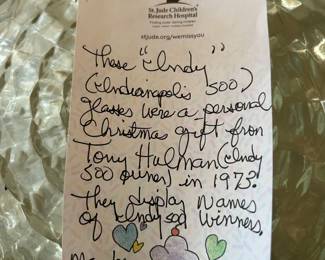 St. Jude Children's
Research Hospital
Finding cures. Saving children.
stjude.org/wemissyou
These "Indy"
(Indianapolis 500)
glasses were a personal
Christmas gift from
Tony Hulman (Indy
500 owner) in 1973.
They display names
of Indy 500 winners,